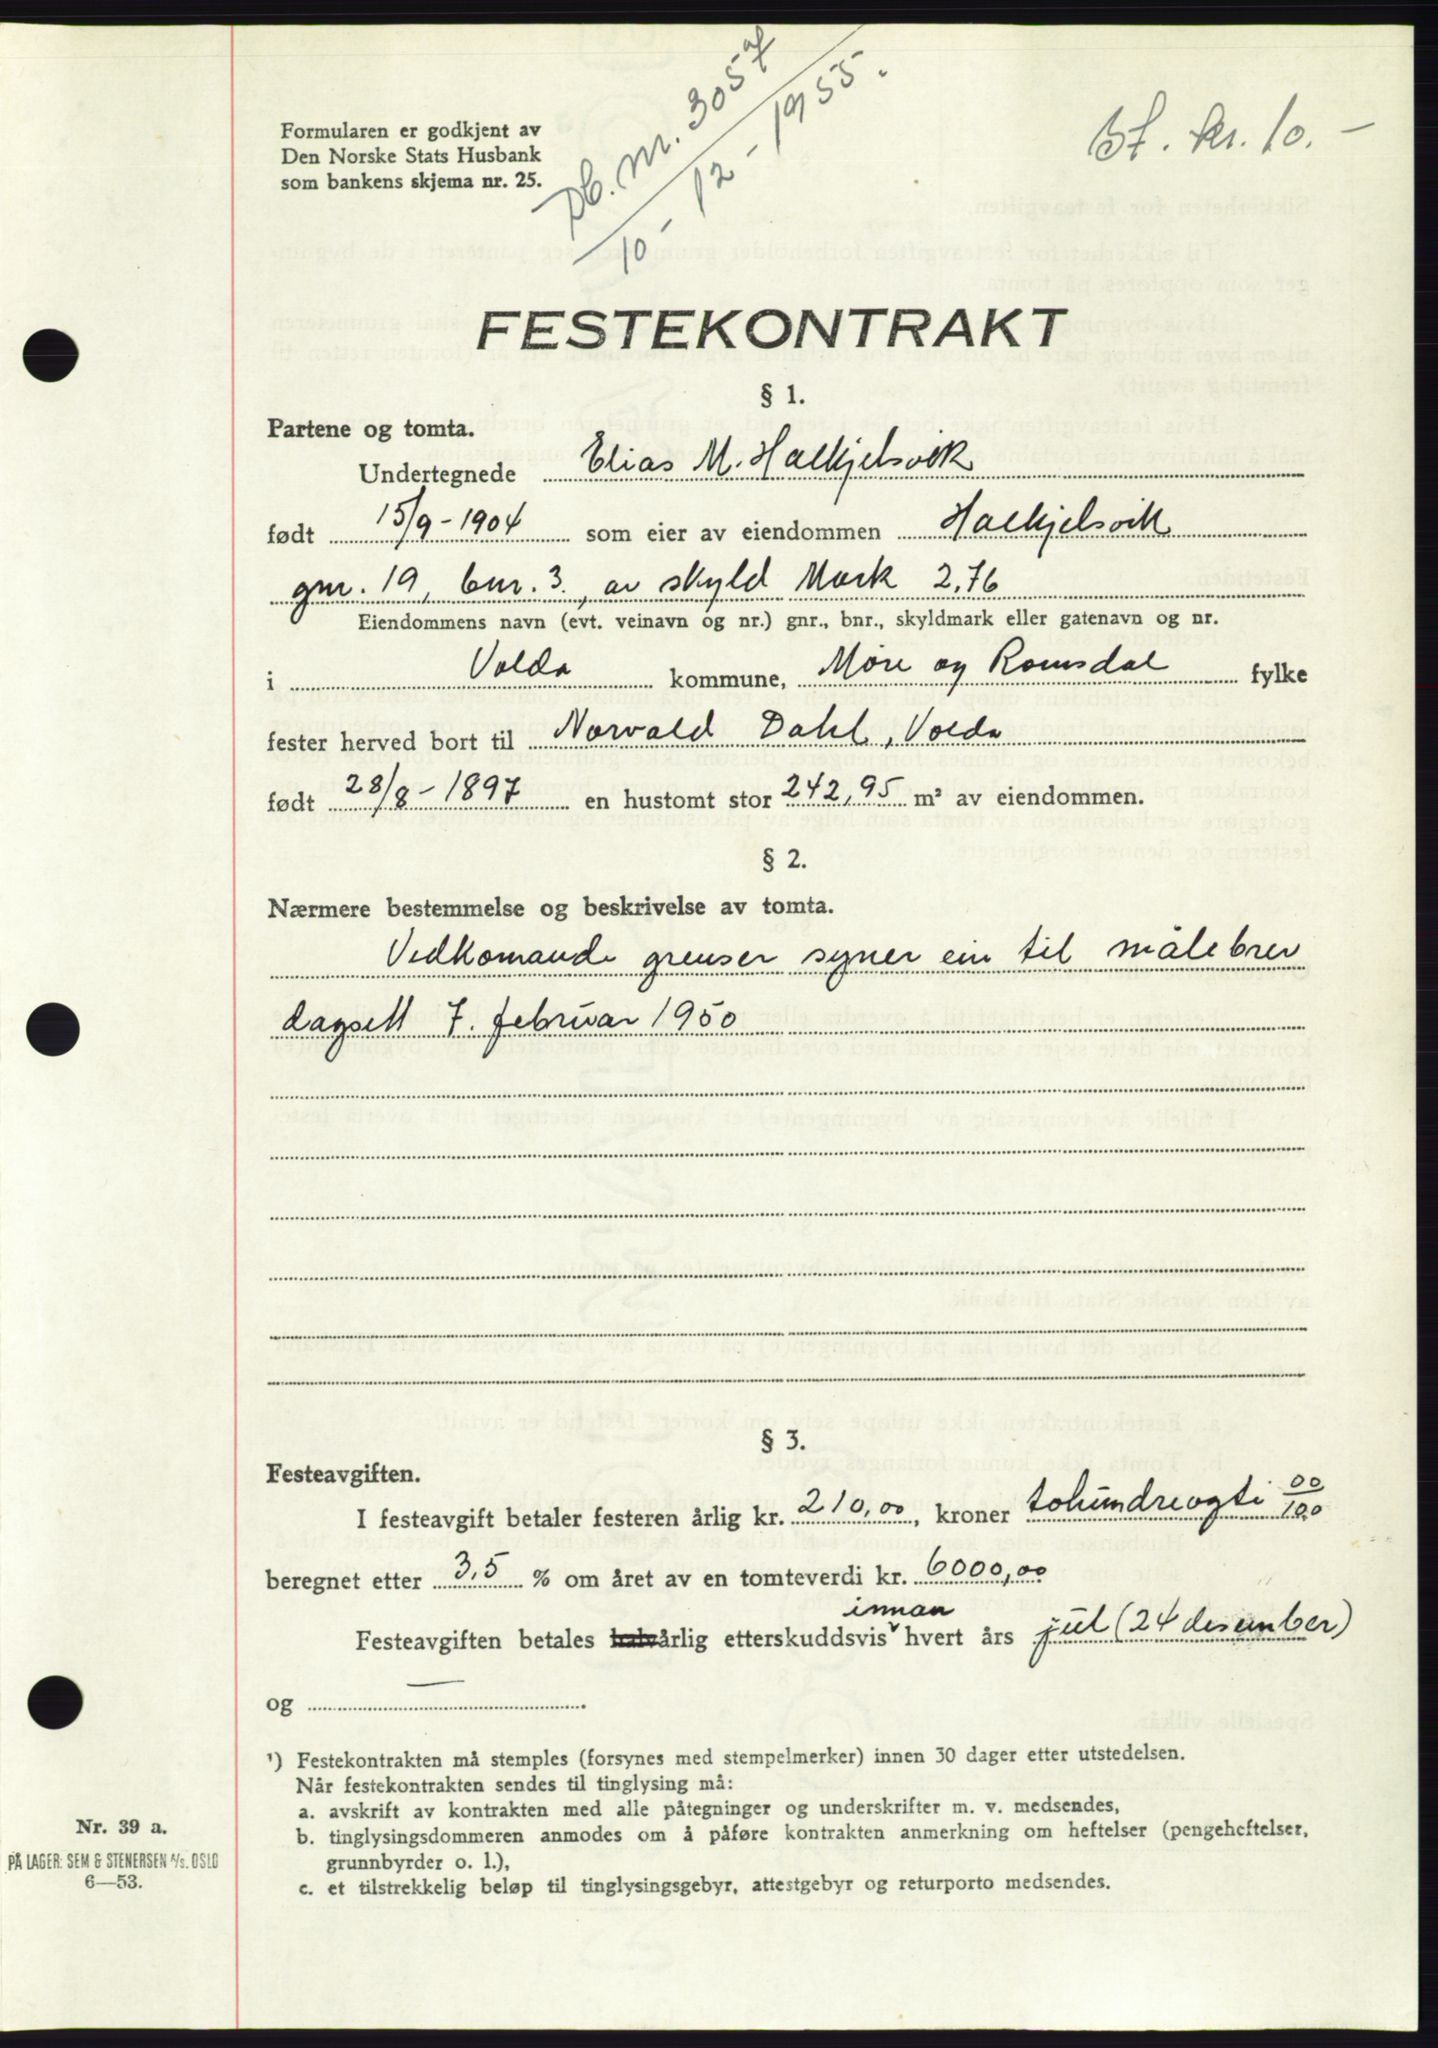 Db. nr. 3057
10-12-1955.
St. kr. 10.-
Formularen er godkjent av
Den Norske Stats Husbank
som bankens skjema nr. 25.
FESTEKONTRAKT
§ 1.
Partene og tomta.
Undertegnede Elias M. Halkjelsvik
født 15/9-1904 som eier av eiendommen Halkjelsvik
gnr. 19, bnr. 3, av skyld Mark 2,76
Eiendommens navn (evt. veinavn og nr.) gnr., bnr., skyldmark eller gatenavn og nr.
i Volda kommune, Møre og Romsdal fylke
fester herved bort til Norvald Dahl, Volda
født 28/8-1897 en hustomt stor 242,95 m² av eiendommen.
§ 2.
Nærmere bestemmelse og beskrivelse av tomta.
Vedkomande grenser syner ein til målebrev
dagsett 7. februar 1950
§ 3.
Festeavgiften.
I festeavgift betaler festeren årlig kr. 210,00, kroner tohundreogti 00/100
beregnet etter 3,5 % om året av en tomteverdi kr. 6000,00
innan
Festeavgiften betales halvårlig etterskuddsvis hvert års jul (24 desember)
og —
¹) Festekontrakten må stemples (forsynes med stempelmerker) innen 30 dager etter utstedelsen.
Når festekontrakten sendes til tinglysing må:
a. avskrift av kontrakten med alle påtegninger og underskrifter m. v. medsendes,
b. tinglysingsdommeren anmodes om å påføre kontrakten anmerkning om heftelser (pengeheftelser,
grunnbyrder o. l.),
c. et tilstrekkelig beløp til tinglysingsgebyr, attestgebyr og returporto medsendes.
Nr. 39 a.
PÅ LAGER: SEM & STENERSEN A/S. OSLO
6—53.